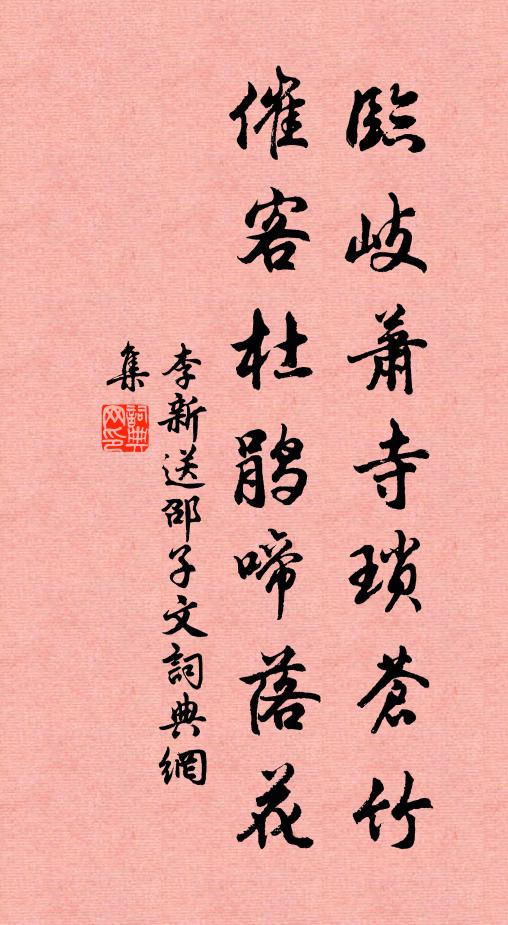 臨岐蕭寺瑣蒼竹
催客杜鵑啼落花
李新送邵子文詞典網
集
詞典網印